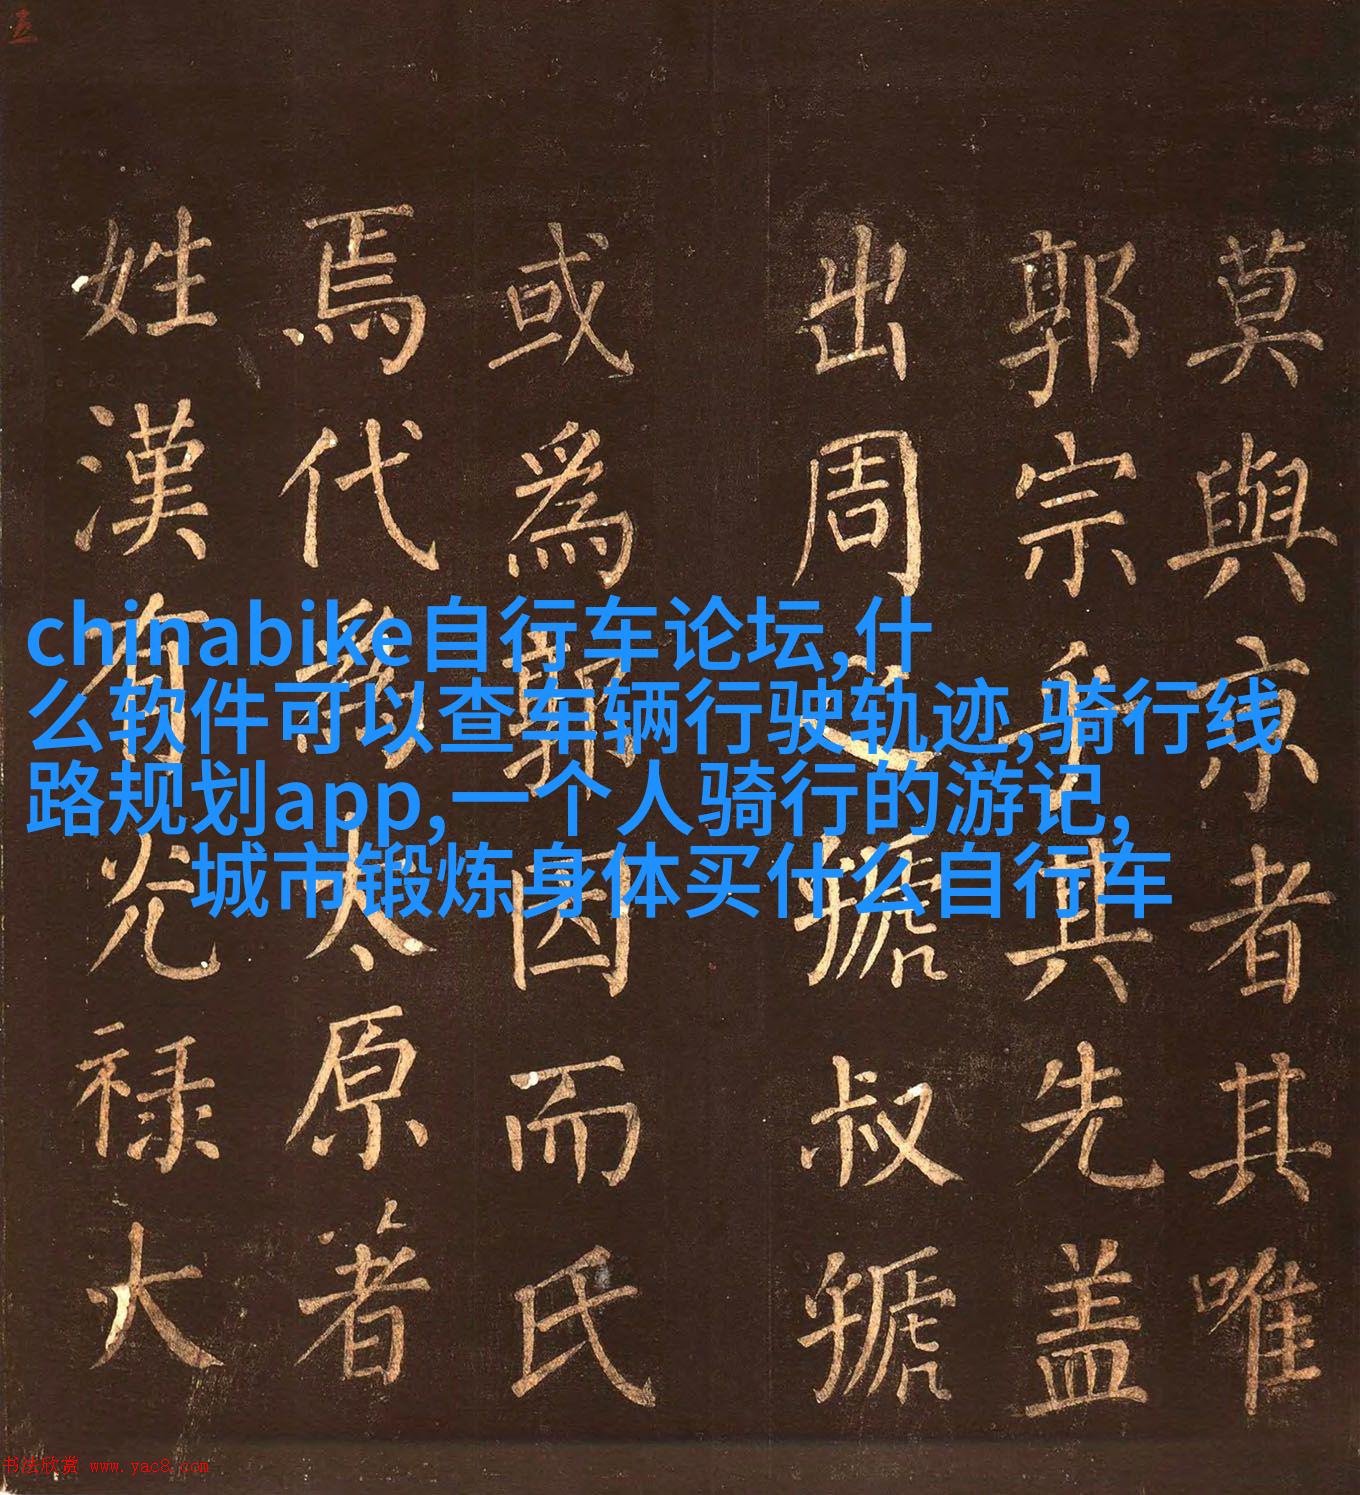 莫與京者其唯
郭宗乎其先盖
出周之虢叔虢
或爲郭因而氏
焉代爲太原著
姓漢有光禄大
chinabike自行车论坛,什
么软件可以查车辆行驶轨迹,骑行线
路规划app,一个人骑行的游记,
城市锻炼身体买什么自行车
书法欣赏 www.yac8.com